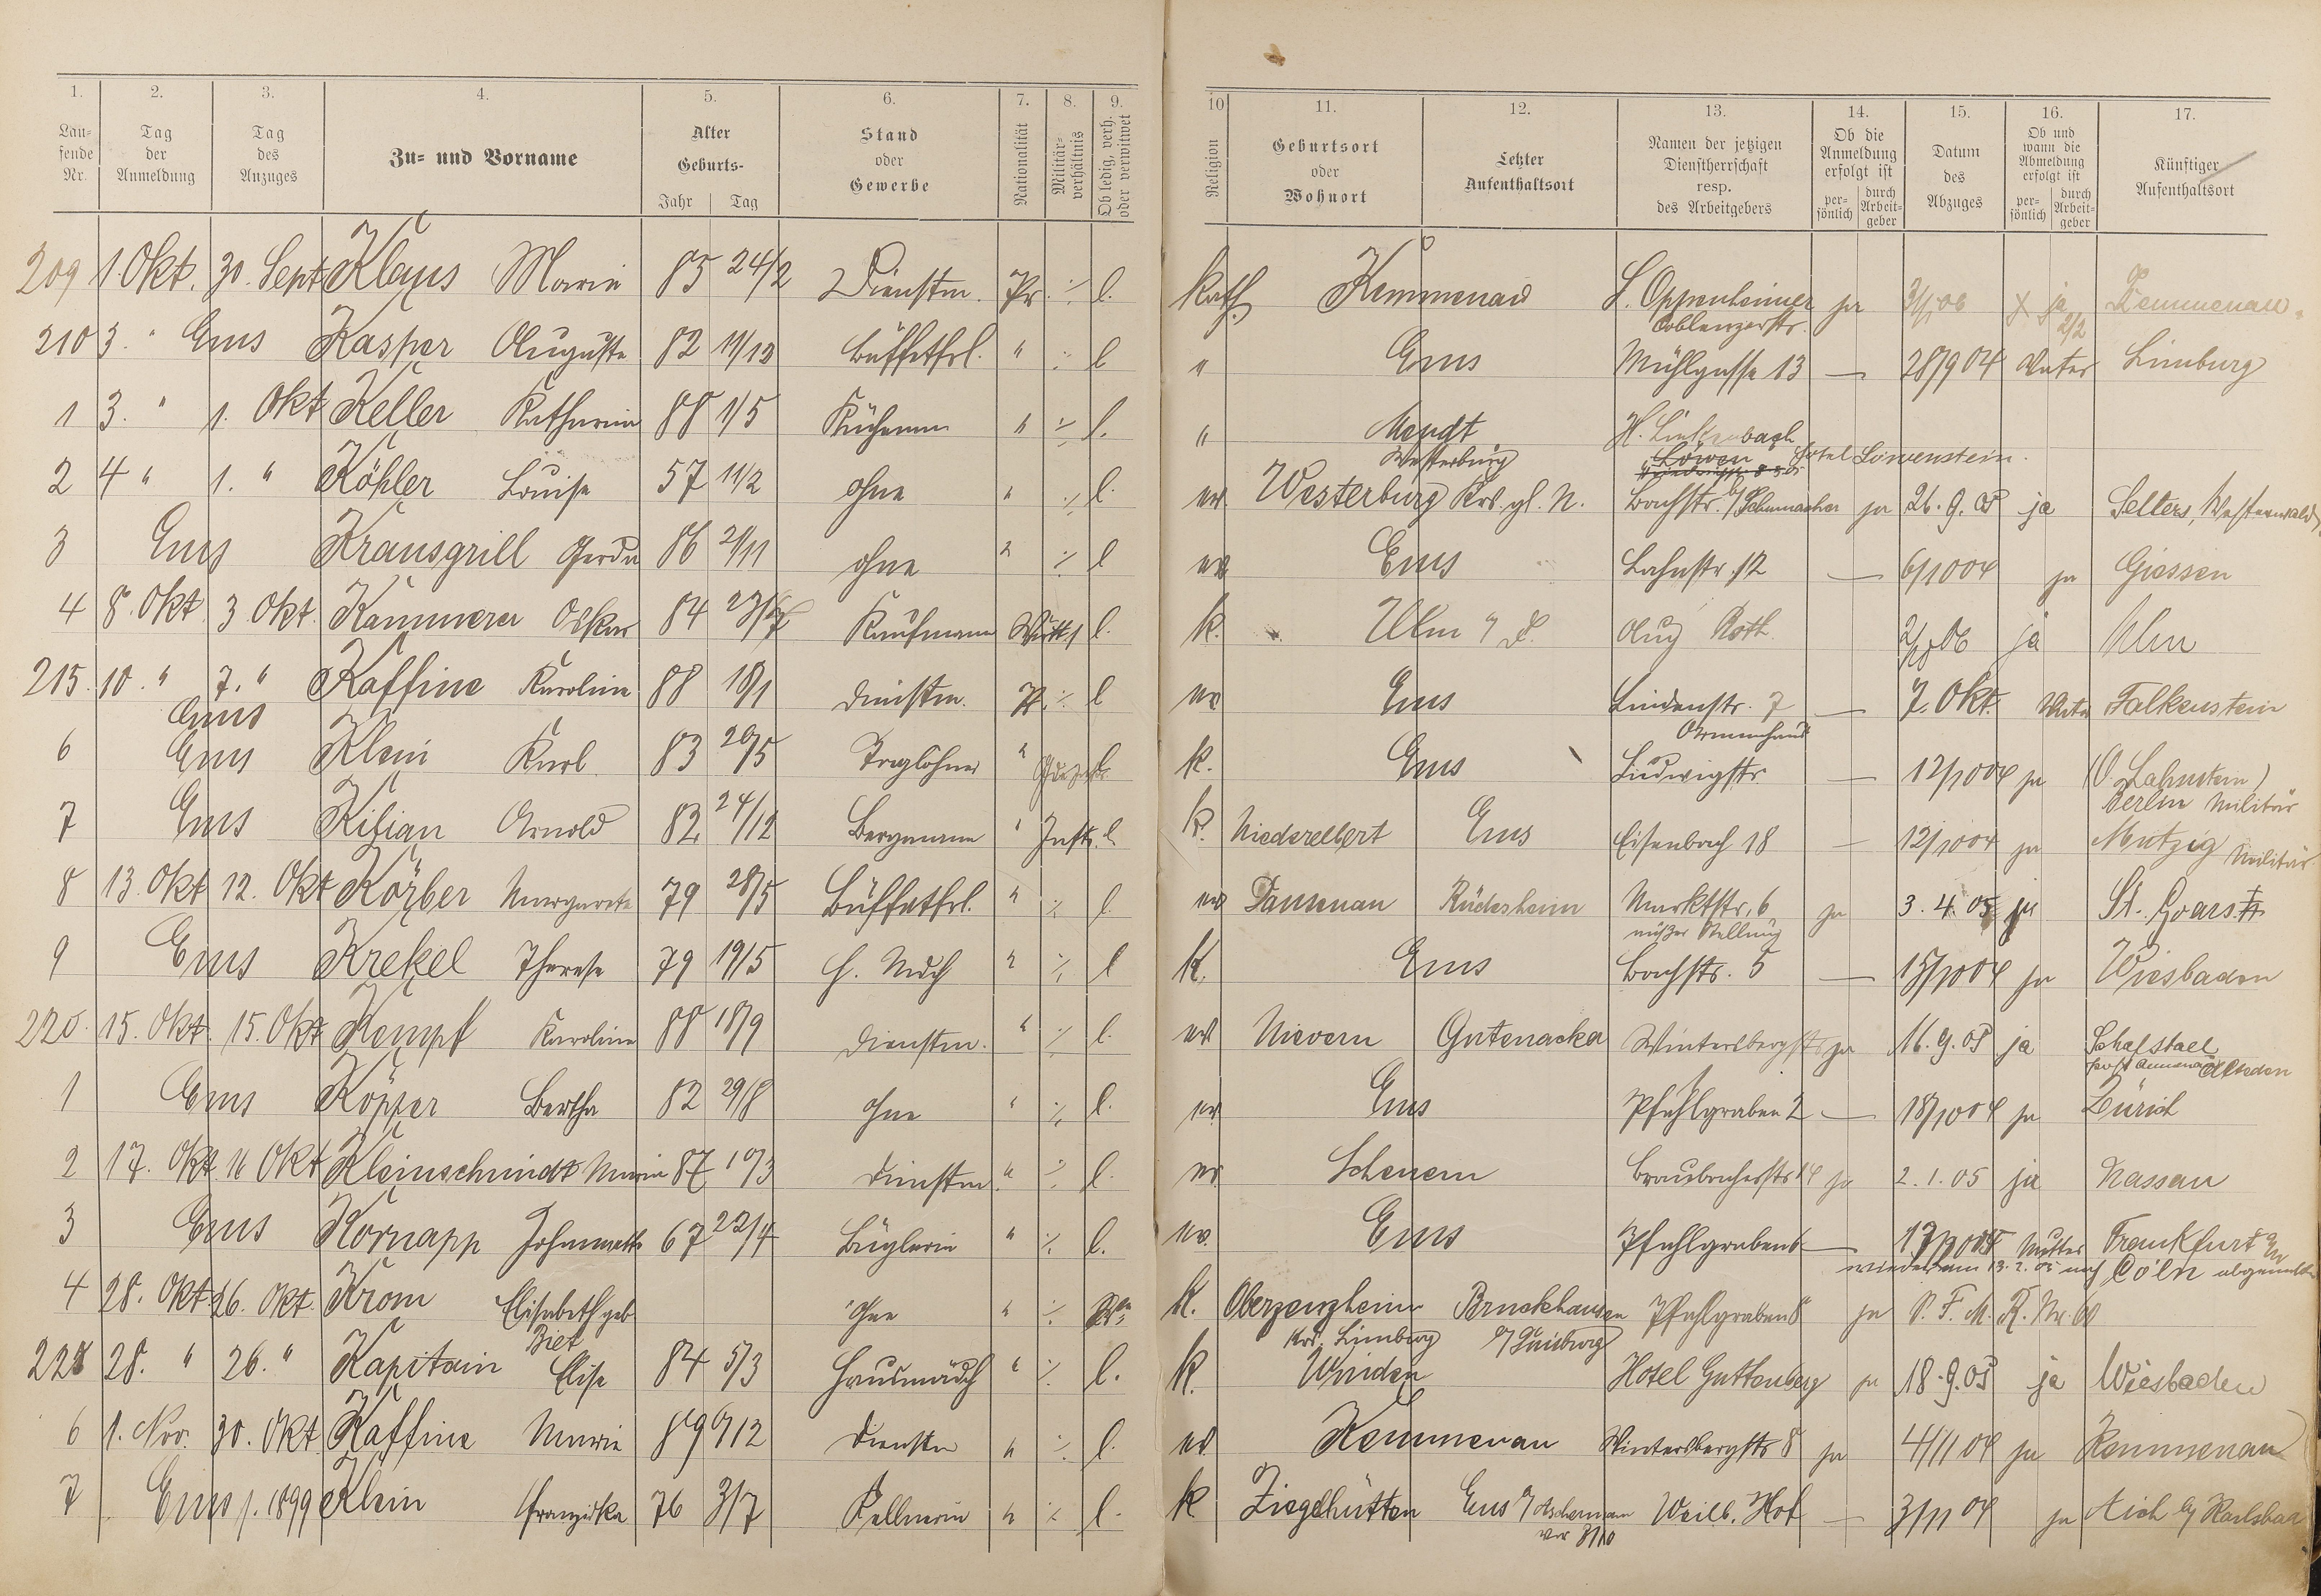 1. 2. 3. 4. 5. 6. 7. 8. 9. 10 11. 12. 13. 14. 15. 16. 17.
Lau-fende Nr. | Tag der Anmeldung | Tag des Anzuges | Zu- und Vorname | Alter Geburts- Jahr Tag | Stand oder Gewerbe | Nationalität | Militär-verhältnis | Ob ledig, verh. oder verwitwet | Religion | Geburtsort oder Wohnort | Letzter Aufenthaltsort | Namen der jetzigen Dienstherrschaft resp. des Arbeitgebers | Ob die Anmeldung erfolgt ist per-sönlich durch Arbeit-geber | Datum des Abzuges | Ob und wann die Abmeldung erfolgt ist per-sönlich durch Arbeit-geber | Künftiger Aufenthaltsort
209 1. Okt. 30. Sept Klaus Marie 85 24/2 Dienstm. Pr. ·/. l. Kath. Kemmenau L. Oppenheimer Coblenzerstr. ja 3/1 06 ja 2/2 Kemmenau.
210 3. " Ems Kasper Auguste 82 11/12 Büffetfrl. " ·/. l " Ems Mühlgasse 13 — 28/9 04 Vater Limburg
1 3. " 1. Okt Keller Katharina 88 1/5 Küchenm " ·/. l. " Mendt Westerburg H. Linkenbach Löwen Hotel Löwenstein.
2 4 " 1. " Köhler Louise 57 11/2 ohne " ·/. l. ev. Westerburg Krs. gl. N. Bachstr. b/ Schumacher ja 26. 9. 05 ja Selters, Westerwald
3 Ems Krausgrill Gerda 86 21/11 ohne " ·/. l ev Ems Lahnstr. 12 — 6/10 04 ja Giessen
4 8. Okt 3. Okt. Kammerer Oskar 84 Kaufmann Württ l. k. Ulm a/ D. Aug Roth ja Ulm
215. 10. " 7. " Ems Kaffine Karoline 88 18/1 Dienstm. Pr. ·/. l ev Ems Lindenstr. 7 — 7. Okt. Vater Falkenstein
6 Ems Klein Karl 83 20/5 Taglöhner " l k. Ems Armenhaus Ludwigstr. — 12/10 04 ja (O. Lahnstein) Berlin Militär
7 Ems Kilian Arnold 82 24/12 Bergmann " Inftr. l. k. Niederelbert Ems Eisenbach 18 — 12/10 04 ja Mutzig Militär
8 13. Okt 12. Okt Körber Margarete 79 28/5 Büffetfrl. " ·/. l. ev Dausenau Rüdesheim Marktstr. 6 außer Stellung ja 3. 4. 05 ja St. Goarsh.
9 Ems Krekel Therese 79 19/5 " ·/. l K. Ems Bachstr. 5 — 15/10 04 ja Wiesbaden
220. 15. Okt. 15. Okt Kempf Karoline 88 18/9 Dienstm. " ·/. l. ev Nievern Gutenacker Wintersbergstr ja 16. 9. 05 ja Schafstall
1 Ems Köpper Bertha 82 29/8 ohne " ·/. l. ev. Ems Pfahlgraben 2 — 18/10 04 ja Zürich
2 17. Okt 16 Okt Kleinschmidt Maria 87 10/3 Dienstm. " ·/. l. ev. Scheuern Braubacherstr 14 ja 2. 1. 05 ja Nassau
3 Ems Kornapp Johannette 67 22/4 Büglerin " ·/. l. ev. Ems Pfahlgraben 6 — Mutter Frankfurt a/M
wieder am 13. 2. 05 nach Cöln abgemeldet
4 28. Okt. 26. Okt. Krom Elisabeth geb. Ziet ohne " ·/. K. Oberzeuzheim Krs. Limburg Bruckhausen b/ Duisburg Pfahlgraben 8 ja S. F. M. R. Nr. 60
225 28. " 26. " Kapitain Elise 84 5/3 Hausmädch " ·/. l. K. Winden Hotel Guttenberg ja 18. 9. 05 ja Wiesbaden
6 1. Nov. 30. Okt Kaffine Marie 89 6/12 Dienstm " ·/. l. ev Kemmenau Wintersbergstr 8 ja 4/11 04 ja Kemmenau
7 Ems f. 1899 Klein Franziska 76 3/7 Kellnerin " ·/. l. K Ziegelhütten Ems Weilb. Hof — 3/11 04 ja Aich b/ Karlsbad